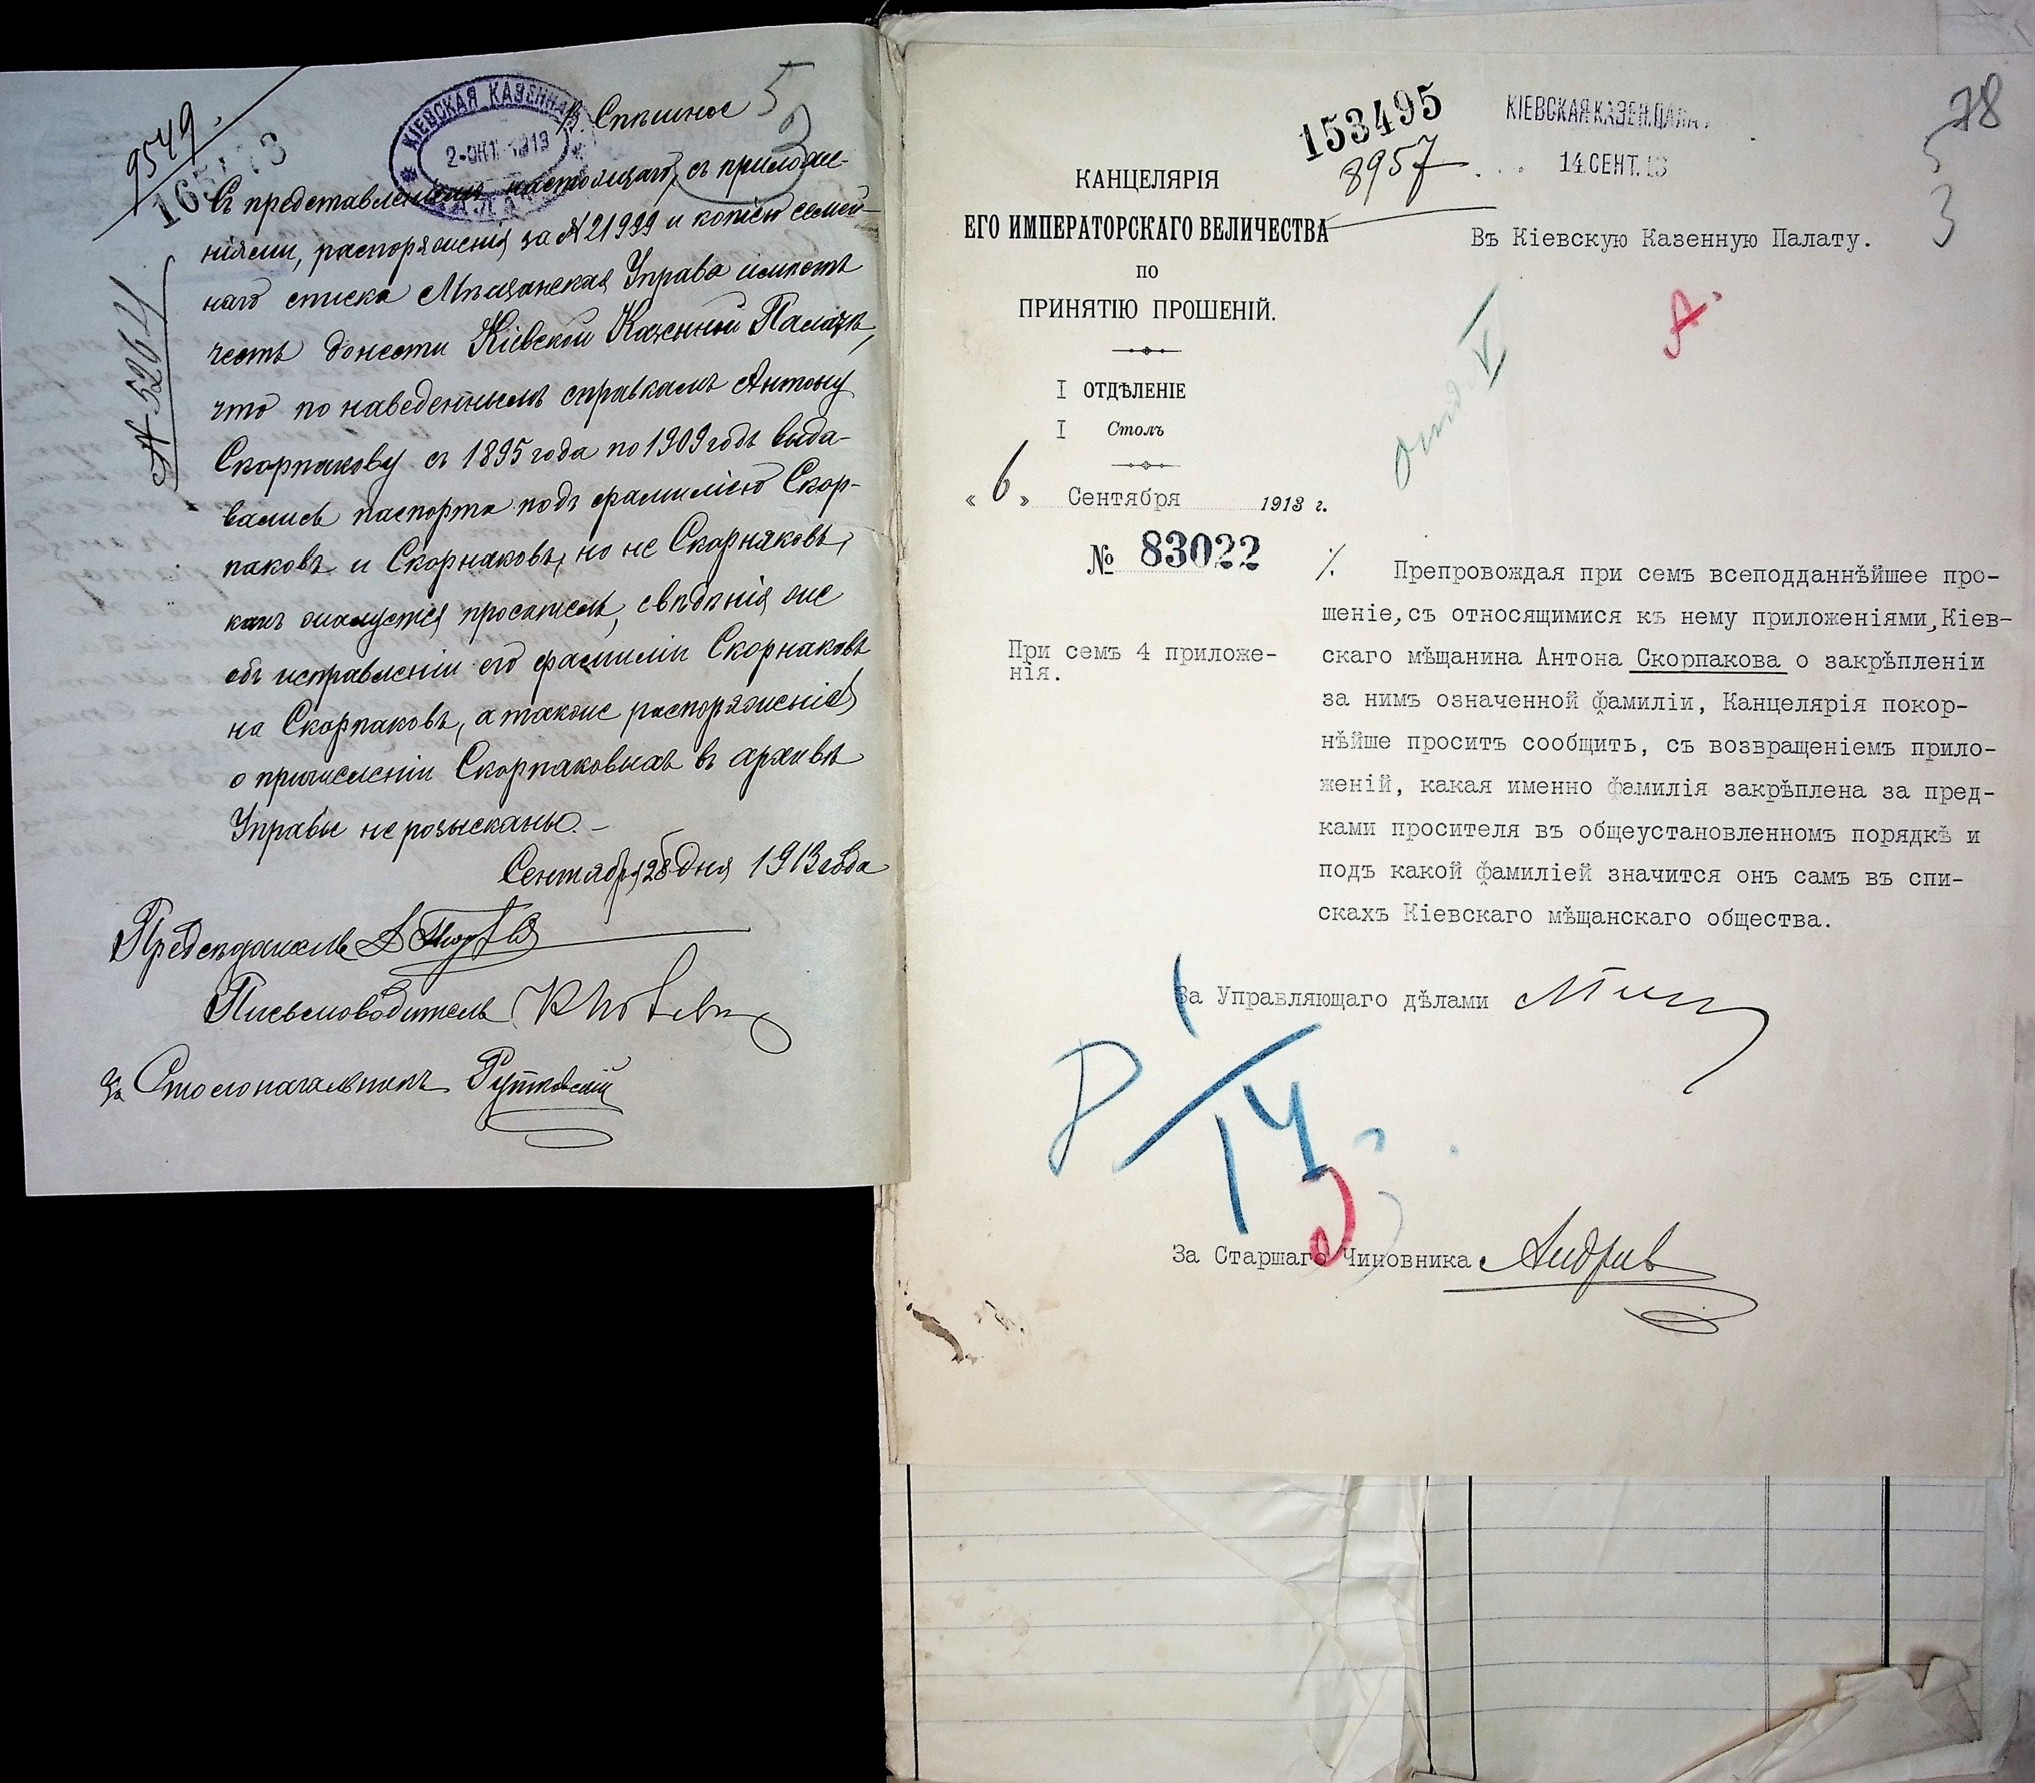 9549.
165173
№ 5264
КІЕВСКАЯ КАЗЕННАЯ ПАЛАТА
2-ОКТ 1913
В. Спѣшное
5
3
Съ представленіемъ настоящаго, съ приложе-
ніями, распоряженія за № 21999 и копіею семей-
наго списка Мѣщанская Управа имѣетъ
честь донести Кіевской Казенной Палатѣ,
что по наведеннымъ справкамъ Антону
Скорпакову съ 1895 года по 1909 годъ выда-
вались паспорта подъ фамиліею Скор-
паковъ и Скорнаковъ, но не Скорняковъ,
какъ значится проситель, свѣдѣнія же
объ исправленіи его фамиліи Скорнаковъ
на Скорпаковъ, а также распоряженія
о причисленіи Скорпаковыхъ въ архивѣ
Управы не розысканы. –
Сентября 28 дня 1913 года
Предсѣдатель
Письмоводитель
За Столоначальникъ Рутковскій
153495
8957
КІЕВСКАЯ КАЗЕН. ПАЛАТА
14 СЕНТ. 13
78
5
3
КАНЦЕЛЯРІЯ
ЕГО ИМПЕРАТОРСКАГО ВЕЛИЧЕСТВА
ПО
ПРИНЯТІЮ ПРОШЕНІЙ.
I ОТДѢЛЕНІЕ
I Столъ
« 6 » Сентября 1913 г.
№ 83022
При семъ 4 приложе-
нія.
Въ Кіевскую Казенную Палату.
отд. V
А.
%. Препровождая при семъ всеподданнѣйшее про-
шеніе, съ относящимися къ нему приложеніями, Кіев-
скаго мѣщанина Антона Скорпакова о закрѣпленіи
за нимъ означенной фамиліи, Канцелярія покор-
нѣйше проситъ сообщить, съ возвращеніемъ прило-
женій, какая именно фамилія закрѣплена за пред-
ками просителя въ общеустановленномъ порядкѣ и
подъ какой фамиліей значится онъ самъ въ спи-
скахъ Кіевскаго мѣщанскаго общества.
За Управляющаго дѣлами
За Старшаго Чиновника